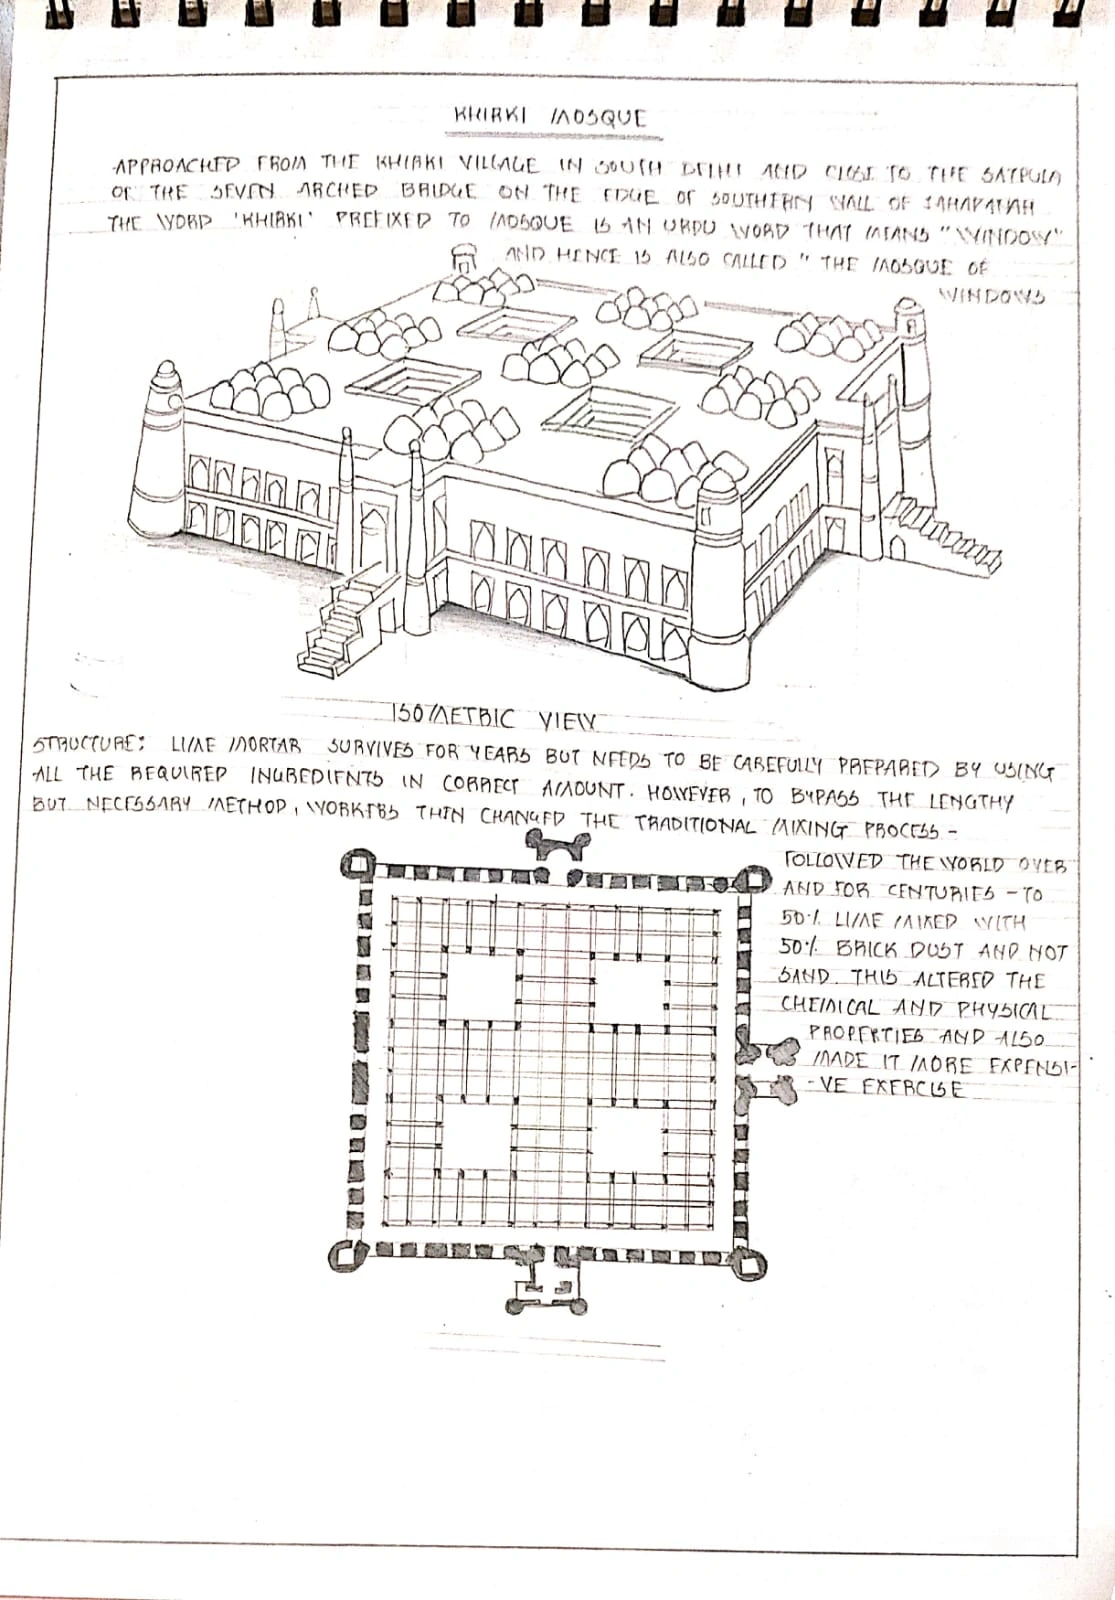 KHIRKI MOSQUE
APPROACHED FROM THE KHIRKI VILLAGE IN SOUTH DELHI AND CLOSE TO THE SATPULA
OR THE SEVEN ARCHED BRIDGE ON THE EDGE OF SOUTHERN WALL OF JAHAPANAH
THE WORD 'KHIRKI' PREFIXED TO MOSQUE IS AN URDU WORD THAT MEANS "WINDOW"
AND HENCE IS ALSO CALLED " THE MOSQUE OF
WINDOWS
ISOMETRIC VIEW
STRUCTURE: LIME MORTAR SURVIVES FOR YEARS BUT NEEDS TO BE CAREFULLY PREPARED BY USING
ALL THE REQUIRED INGREDIENTS IN CORRECT AMOUNT. HOWEVER, TO BYPASS THE LENGTHY
BUT NECESSARY METHOD, WORKERS THEN CHANGED THE TRADITIONAL MIXING PROCESS -
FOLLOWED THE WORLD OVER
AND FOR CENTURIES - TO
50% LIME MIXED WITH
50% BRICK DUST AND NOT
SAND. THIS ALTERED THE
CHEMICAL AND PHYSICAL
PROPERTIES AND ALSO
MADE IT MORE EXPENSI-
-VE EXERCISE